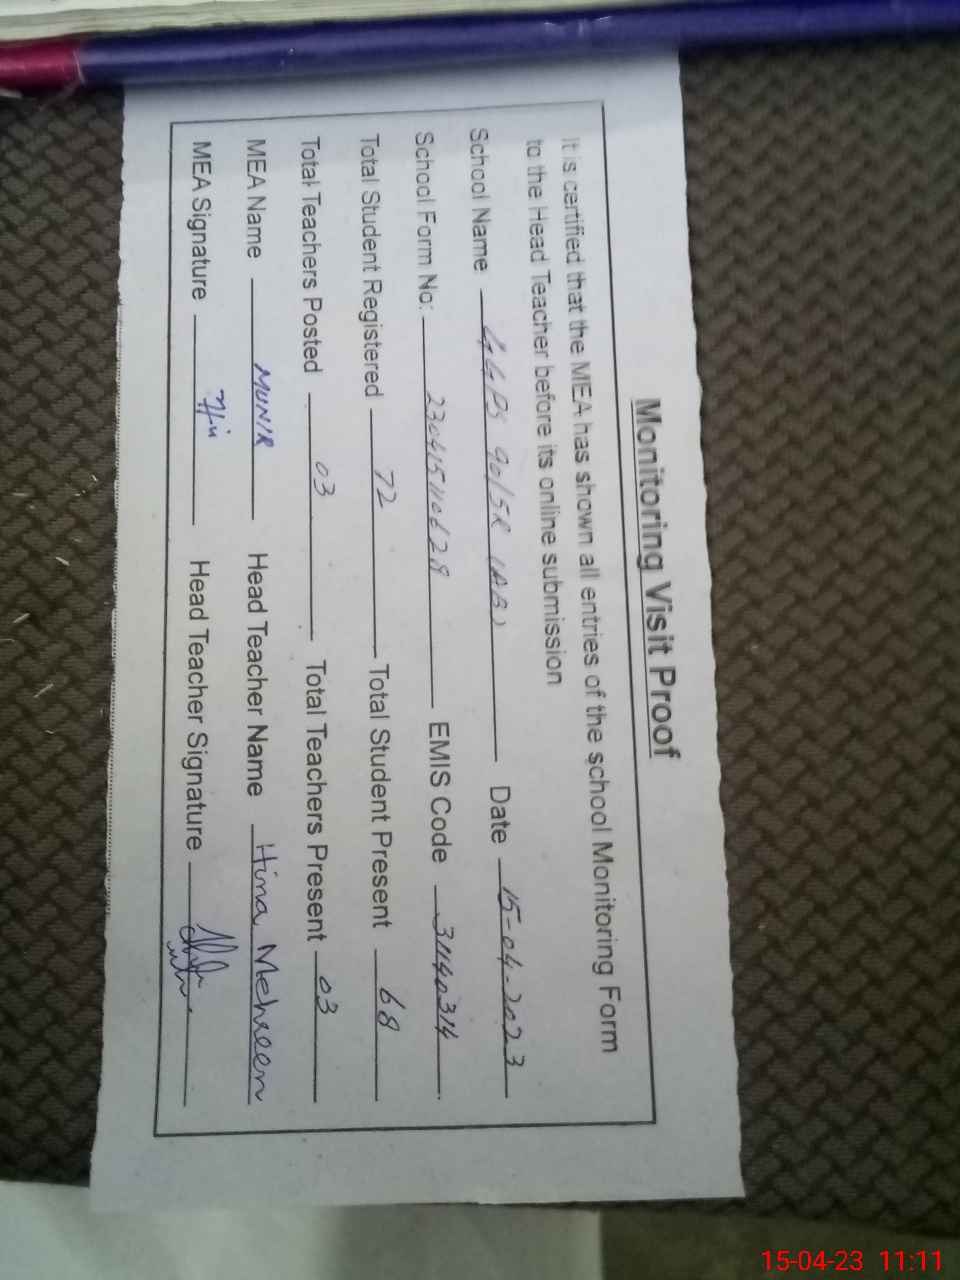 Monitoring Visit Proof
It is certified that the MEA has shown all entries of the school Monitoring Form
to the Head Teacher before its online submission
School Name GGPS 90/5R (AB) Date 15-04-2023
School Form No: 230415110628 EMIS Code 31140314
Total Student Registered 72 Total Student Present 68
Total Teachers Posted 03 Total Teachers Present 03
MEA Name MUNIR Head Teacher Name Hina Mehreen
MEA Signature Head Teacher Signature
15-04-23 11:11